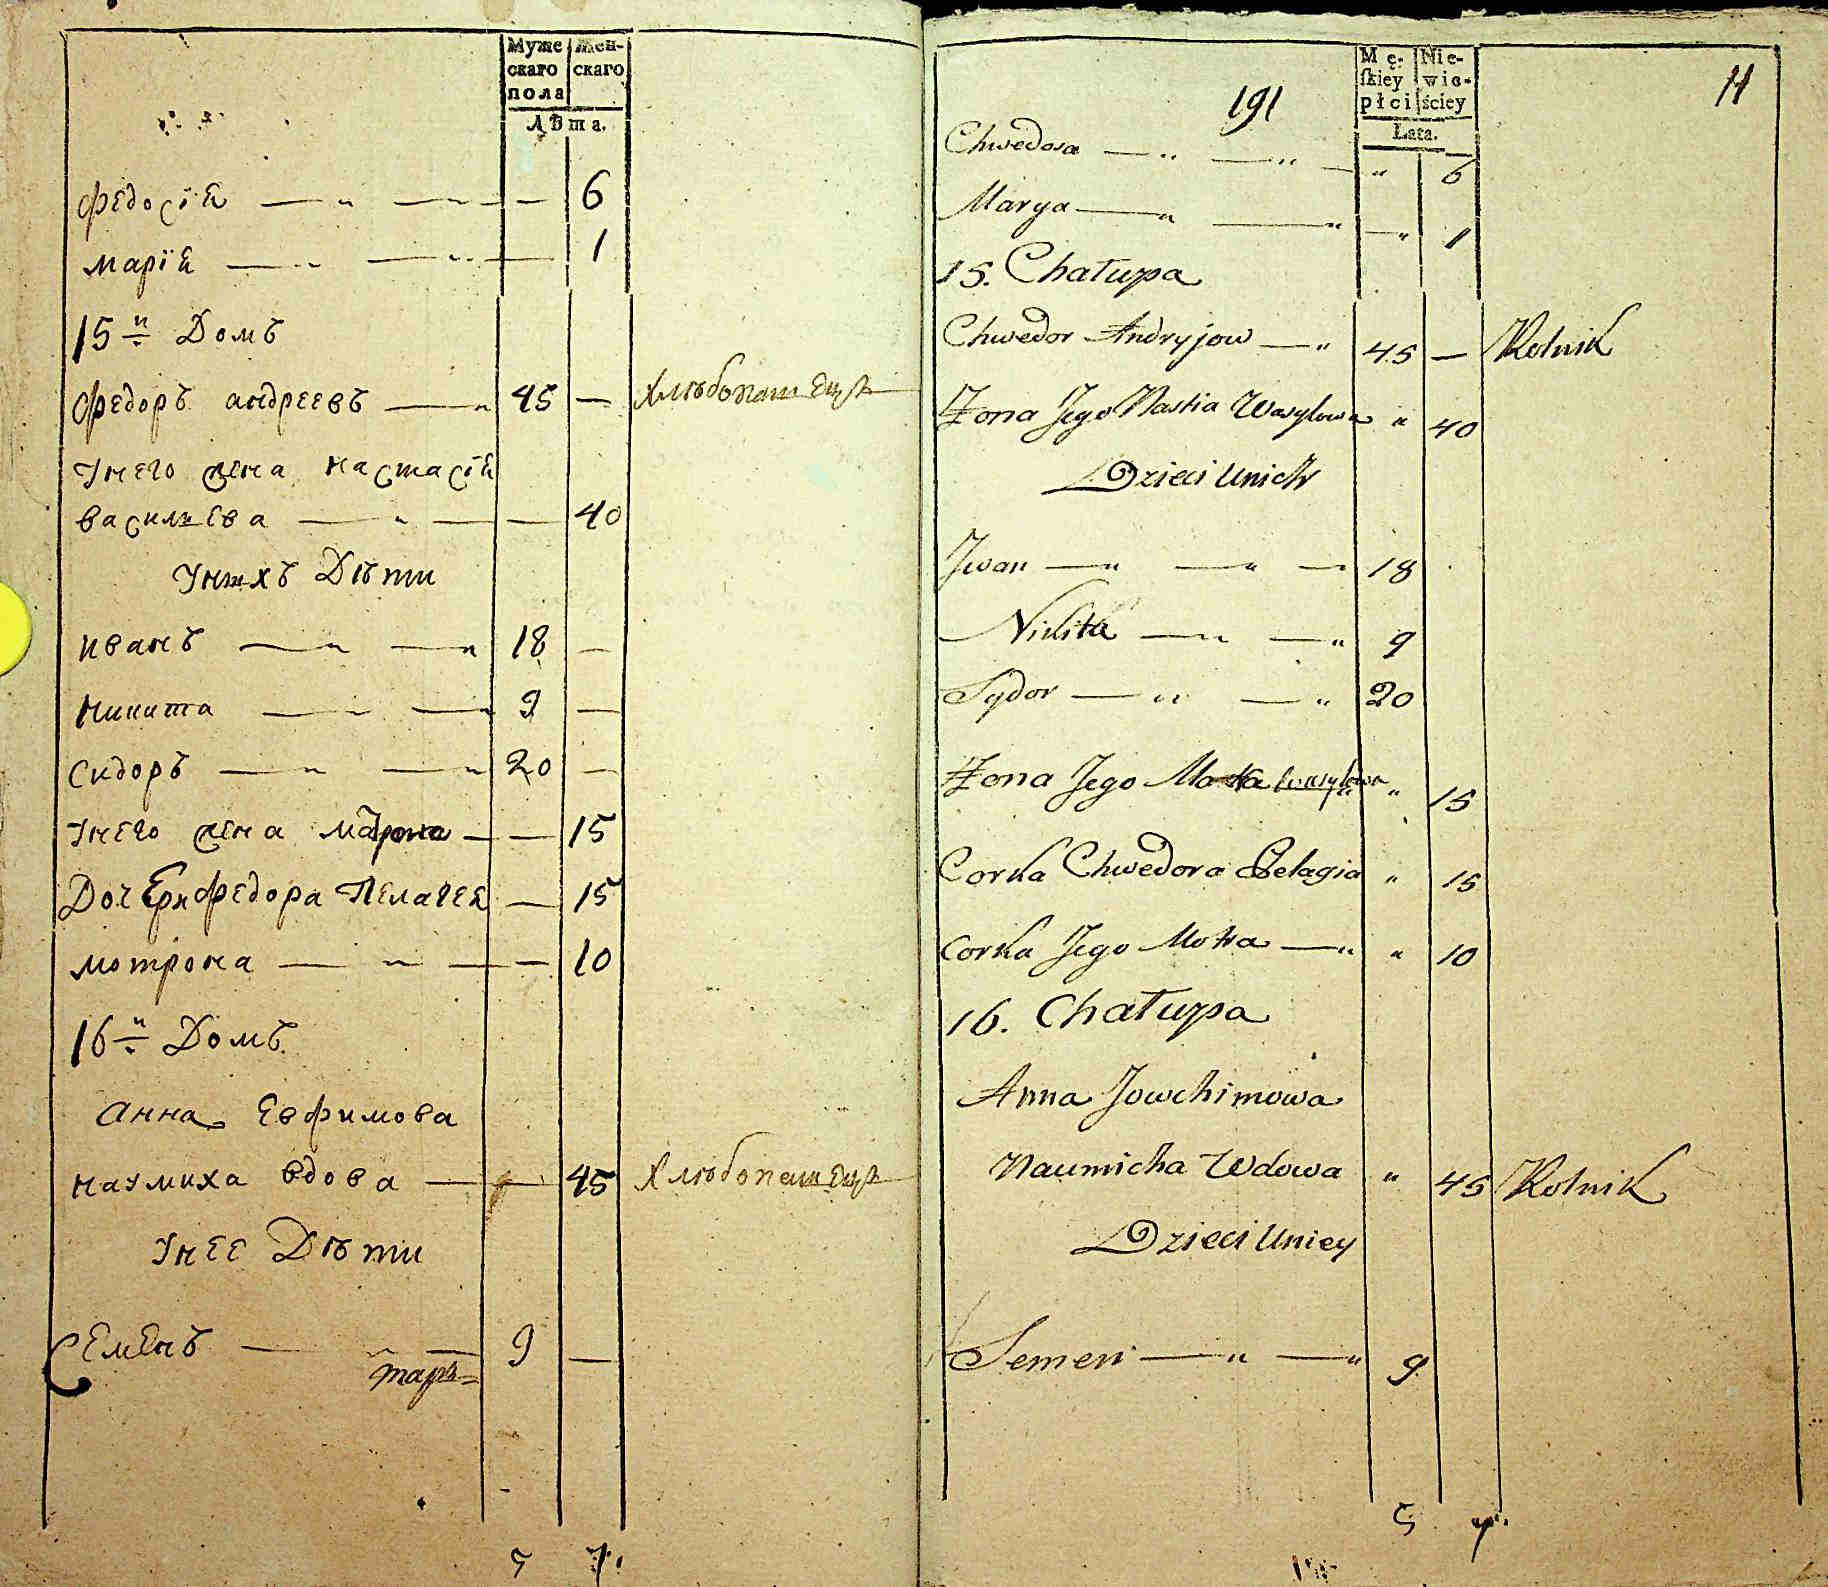 Муже Жен-
скаго скаго
пола
Лѣта.
Федосія 6
Марія 1
15й Домъ
Федоръ андреевъ 45 — хлѣбопашецъ
Унего жена настасія
васильева 40
Унихъ Дѣти
иванъ 18 —
никита 9 —
Сидоръ 20 —
Унего жена 15
Дочери Федора Пелагея 15
мотрона 10
16й Домъ
анна Евфимова
наумиха вдова 45 хлѣбопашецъ
Унее Дѣти
Семенъ 9 —
5 7.
191 11
Mę- Nie-
skiey wie-
płci ściey
Lata.
Chwedosa 6
Marya 1
15. Chałupa
Chwedor Andryjow 45 — Rolnik
Żona Jego Nastia Wasylowa 40
Dzieci Unich
Jwan 18
Nikita 9
Sydor 20
Żona Jego Wasylowa 15
Corka Chwedora Pelagia 15
Corka Jego Motra 10
16. Chałupa
Anna Jowchimowa
Naumicha Wdowa 45 Rolnik
Dzieci Uniey
Semen 9
5 7.